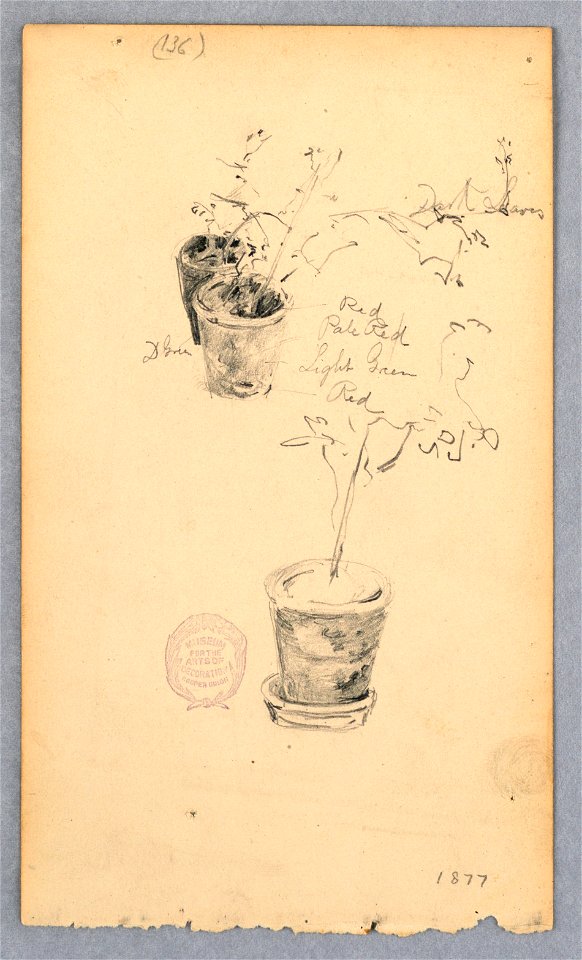 (136)
Dark Leaves
Red
Pale Red
D Green
Light Green
Red
MUSEUM
FOR THE
ARTS OF
DECORATION
COOPER UNION
1877